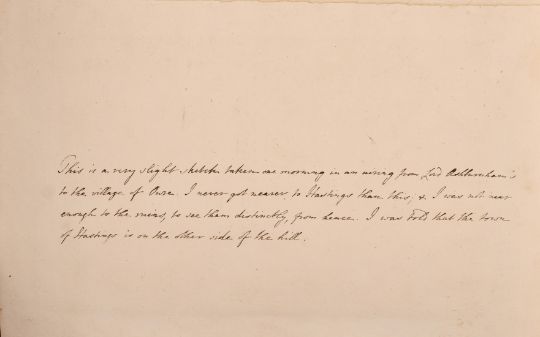 This is a very slight sketch taken one morning in an airing from Lord Ashburnham's
to the village of Oure. I never got nearer to Hastings than this, & I was not near
enough to the ruins, to see them distinctly, from hence. I was told that the town
of Hastings is on the other side of the hill.